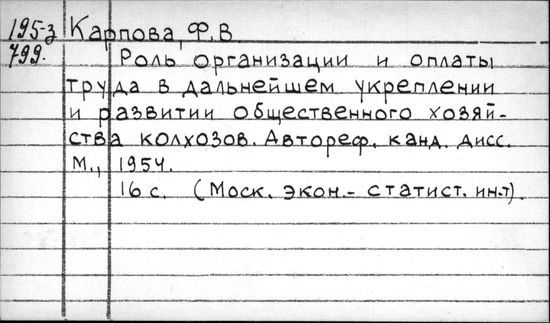 195-3 Карпова, Ф.В
799. Роль организации и оплаты
труда в дальнейшем укреплении
и развитии общественного хозяй-
ства колхозов. Автореф. канд. дисс.
М., 1954.
16 с. (Моск. экон.- статист. ин-т).